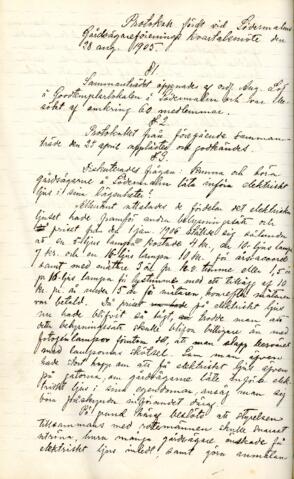 Protokoll fördt vid Södermalms
Gårdsägareförenings kvartalsmöte den
28 aug. 1905.
§1
Sammanträdet öppnades af ordf. Aug. Löf
i Goodtemplarlokalen å Södermalm och var be-
sökt af omkring 60 medlemmar.
§2.
Protokollet från föregående samman-
träde den 25 april upplästes och godkändes.
§3.
Diskuterades frågan: Kunna och böra
gårdsägarne å Södermalm låta införa elektriskt
ljus i sina lägenheter?
Allmänt uttalades de fördelar det elektriska
ljuset hade framför andra belysningssätt och
priset från den 1 jan. 1906 ställer sig sålunda
att en 5 ljus lampa kostade 4 kr., den 10 ljus lampa
7 kr. och en 16 ljus lampa 10 kr. för
samt med mätare 3 öl. pr. timme eller 1,5 ö
pr 16 ljus lampa timme med ett tillägg af 10
kr. pr år mätaren mätaren
vore betald. Då priset på elektriskt ljus
nu hade blifvit så lågt, trodde man att
den belysningssätt skulle blifva billigare än med
fotogenlampor förutom det, att man slapp besväret
med lampornas skötsel. Sam man äfven
hade stort hopp om att få elektriskt ljus äfven
på gatorna, om gårdsägarne läto införa elek-
triskt ljus i sina egendomar ansåg man sig
böra påskynda införandet däraf.
På grund häraf beslöts att styrelsen
tillsammans med rotemännen skulle snarast
utröna, huru många gårdsägare, önskade få
elektriskt ljus inledt samt göra anmälan